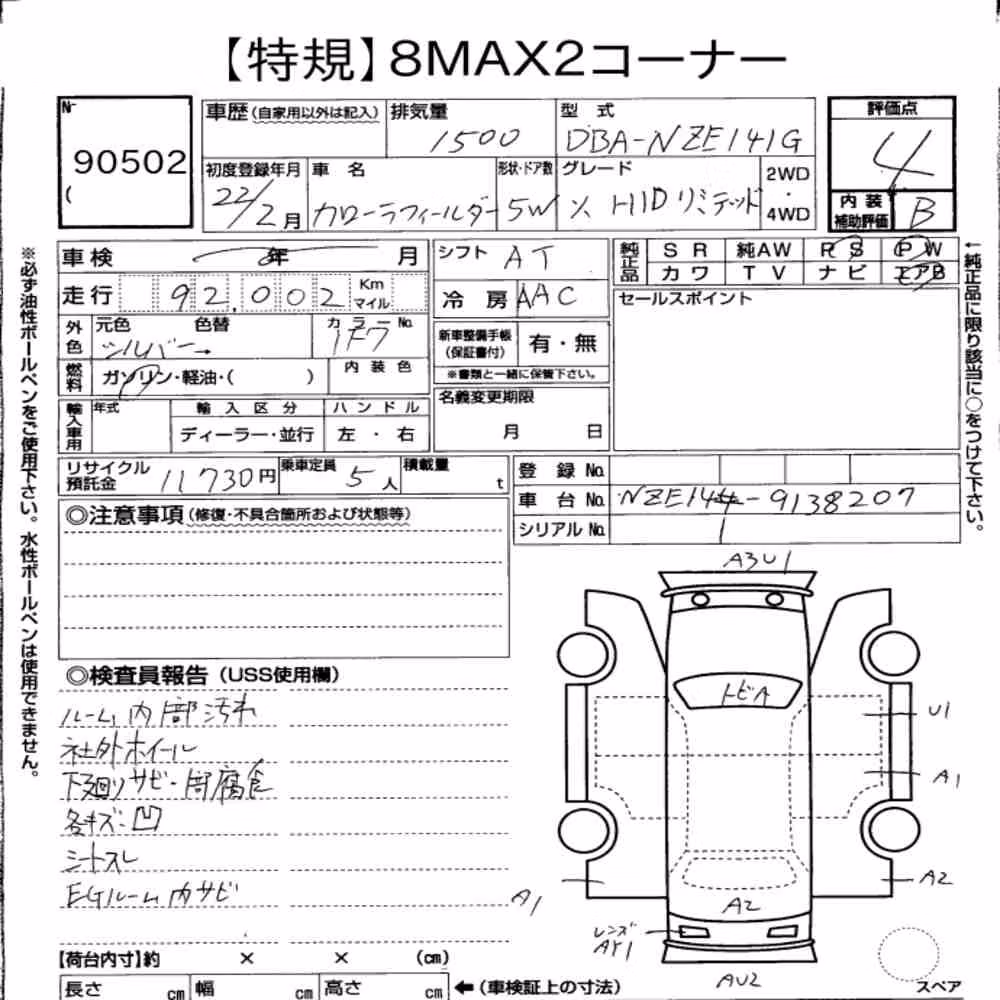 【特規】8MAX2コーナー
No
90502
(
車歴(自家用以外は記入)
排気量
1500
型 式
DBA-NZE141G
評価点
4
初度登録年月
22/2月
車 名
カローラフィールダー
形状・ドア数
5W
グレード
X HIDリミテッド
2WD
・
4WD
内 装
補助評価
B
車検 年 月
シフト AT
純正品
S R 純AW P S P W
カワ T V ナビ エアB
走行 92,002 Km マイル
冷 房 AAC
セールスポイント
外色
元色 色替
シルバー→
カラーNo.
1F7
新車整備手帳
(保証書付)
有・無
※書類と一緒に保管下さい。
燃料
ガソリン・軽油・( )
内 装 色
名義変更期限
月 日
輸入車用
年式
輸 入 区 分
ハ ン ド ル
ディーラー・並行
左 ・ 右
リサイクル
預託金
11730円
乗車定員
5人
積載量
t
登 録 No.
車 台 No. NZE144-9138207
1
シリアル No.
◎注意事項(修復・不具合箇所および状態等)
◎検査員報告(USS使用欄)
ルーム内部汚れ
社外ホイール
下廻りサビ・腐食
各キズ・凹
シートスレ
EGルーム内サビ
A3U1
トビA
U1
A1
A2
A1
A2
レンズ
AY1
AU2
スペア
【荷台内寸】約 × × (cm)
長さ cm 幅 cm 高さ cm ←(車検証上の寸法)
※必ず油性ボールペンをご使用下さい。水性ボールペンは使用できません。
←純正品に限り該当に○をつけて下さい。